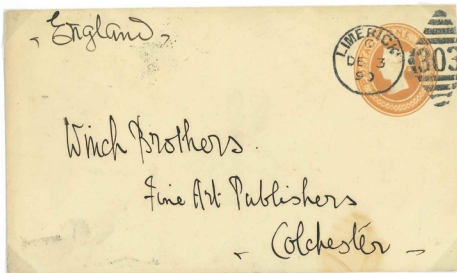 England
LIMERICK
C
DE 3
90
303
Winch Brothers.
Fine Art Publishers
Colchester